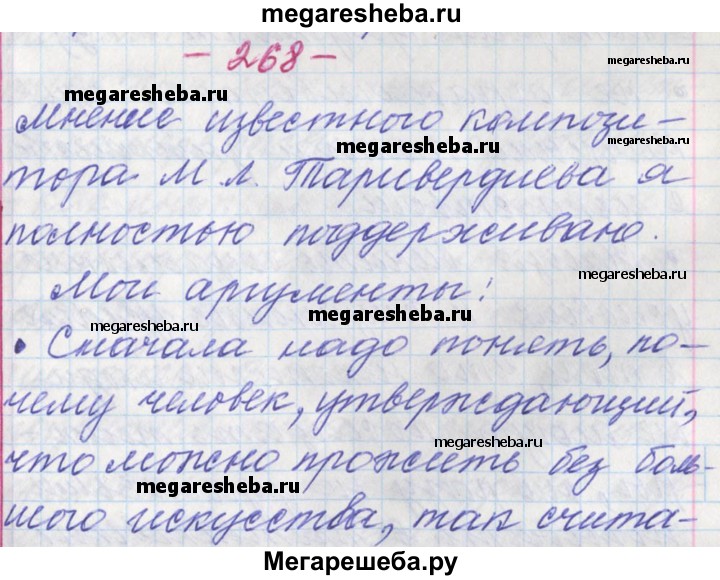 megaresheba.ru
- 268 -
megaresheba.ru
megaresheba.ru
Мнение известного компози-
megaresheba.ru
тора М. Л. Таривердиева я
полностью поддерживаю.
megaresheba.ru
Мои аргументы:
megaresheba.ru
megaresheba.ru
• Сначала надо понять, по-
чему человек, утверждающий,
megaresheba.ru
что можно прожить без боль-
megaresheba.ru
шого искусства, так счита-
Мегарешеба.ру